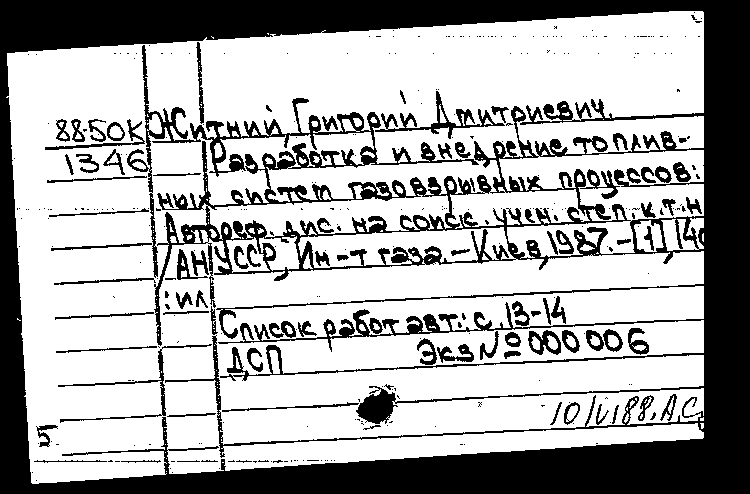 88-50К Житний, Григорий Дмитриевич.
1346 Разработка и внедрение топлив-
ных систем газовзрывных процессов:
Автореф. дис. на соиск. учен. степ. к.т.н
/АН УССР, Ин-т газа.-Киев, 1987.-[1], 14с
: ил
Список работ авт.: с. 13-14
ДСП Экз № 000006
10/VI88. А.С.
5